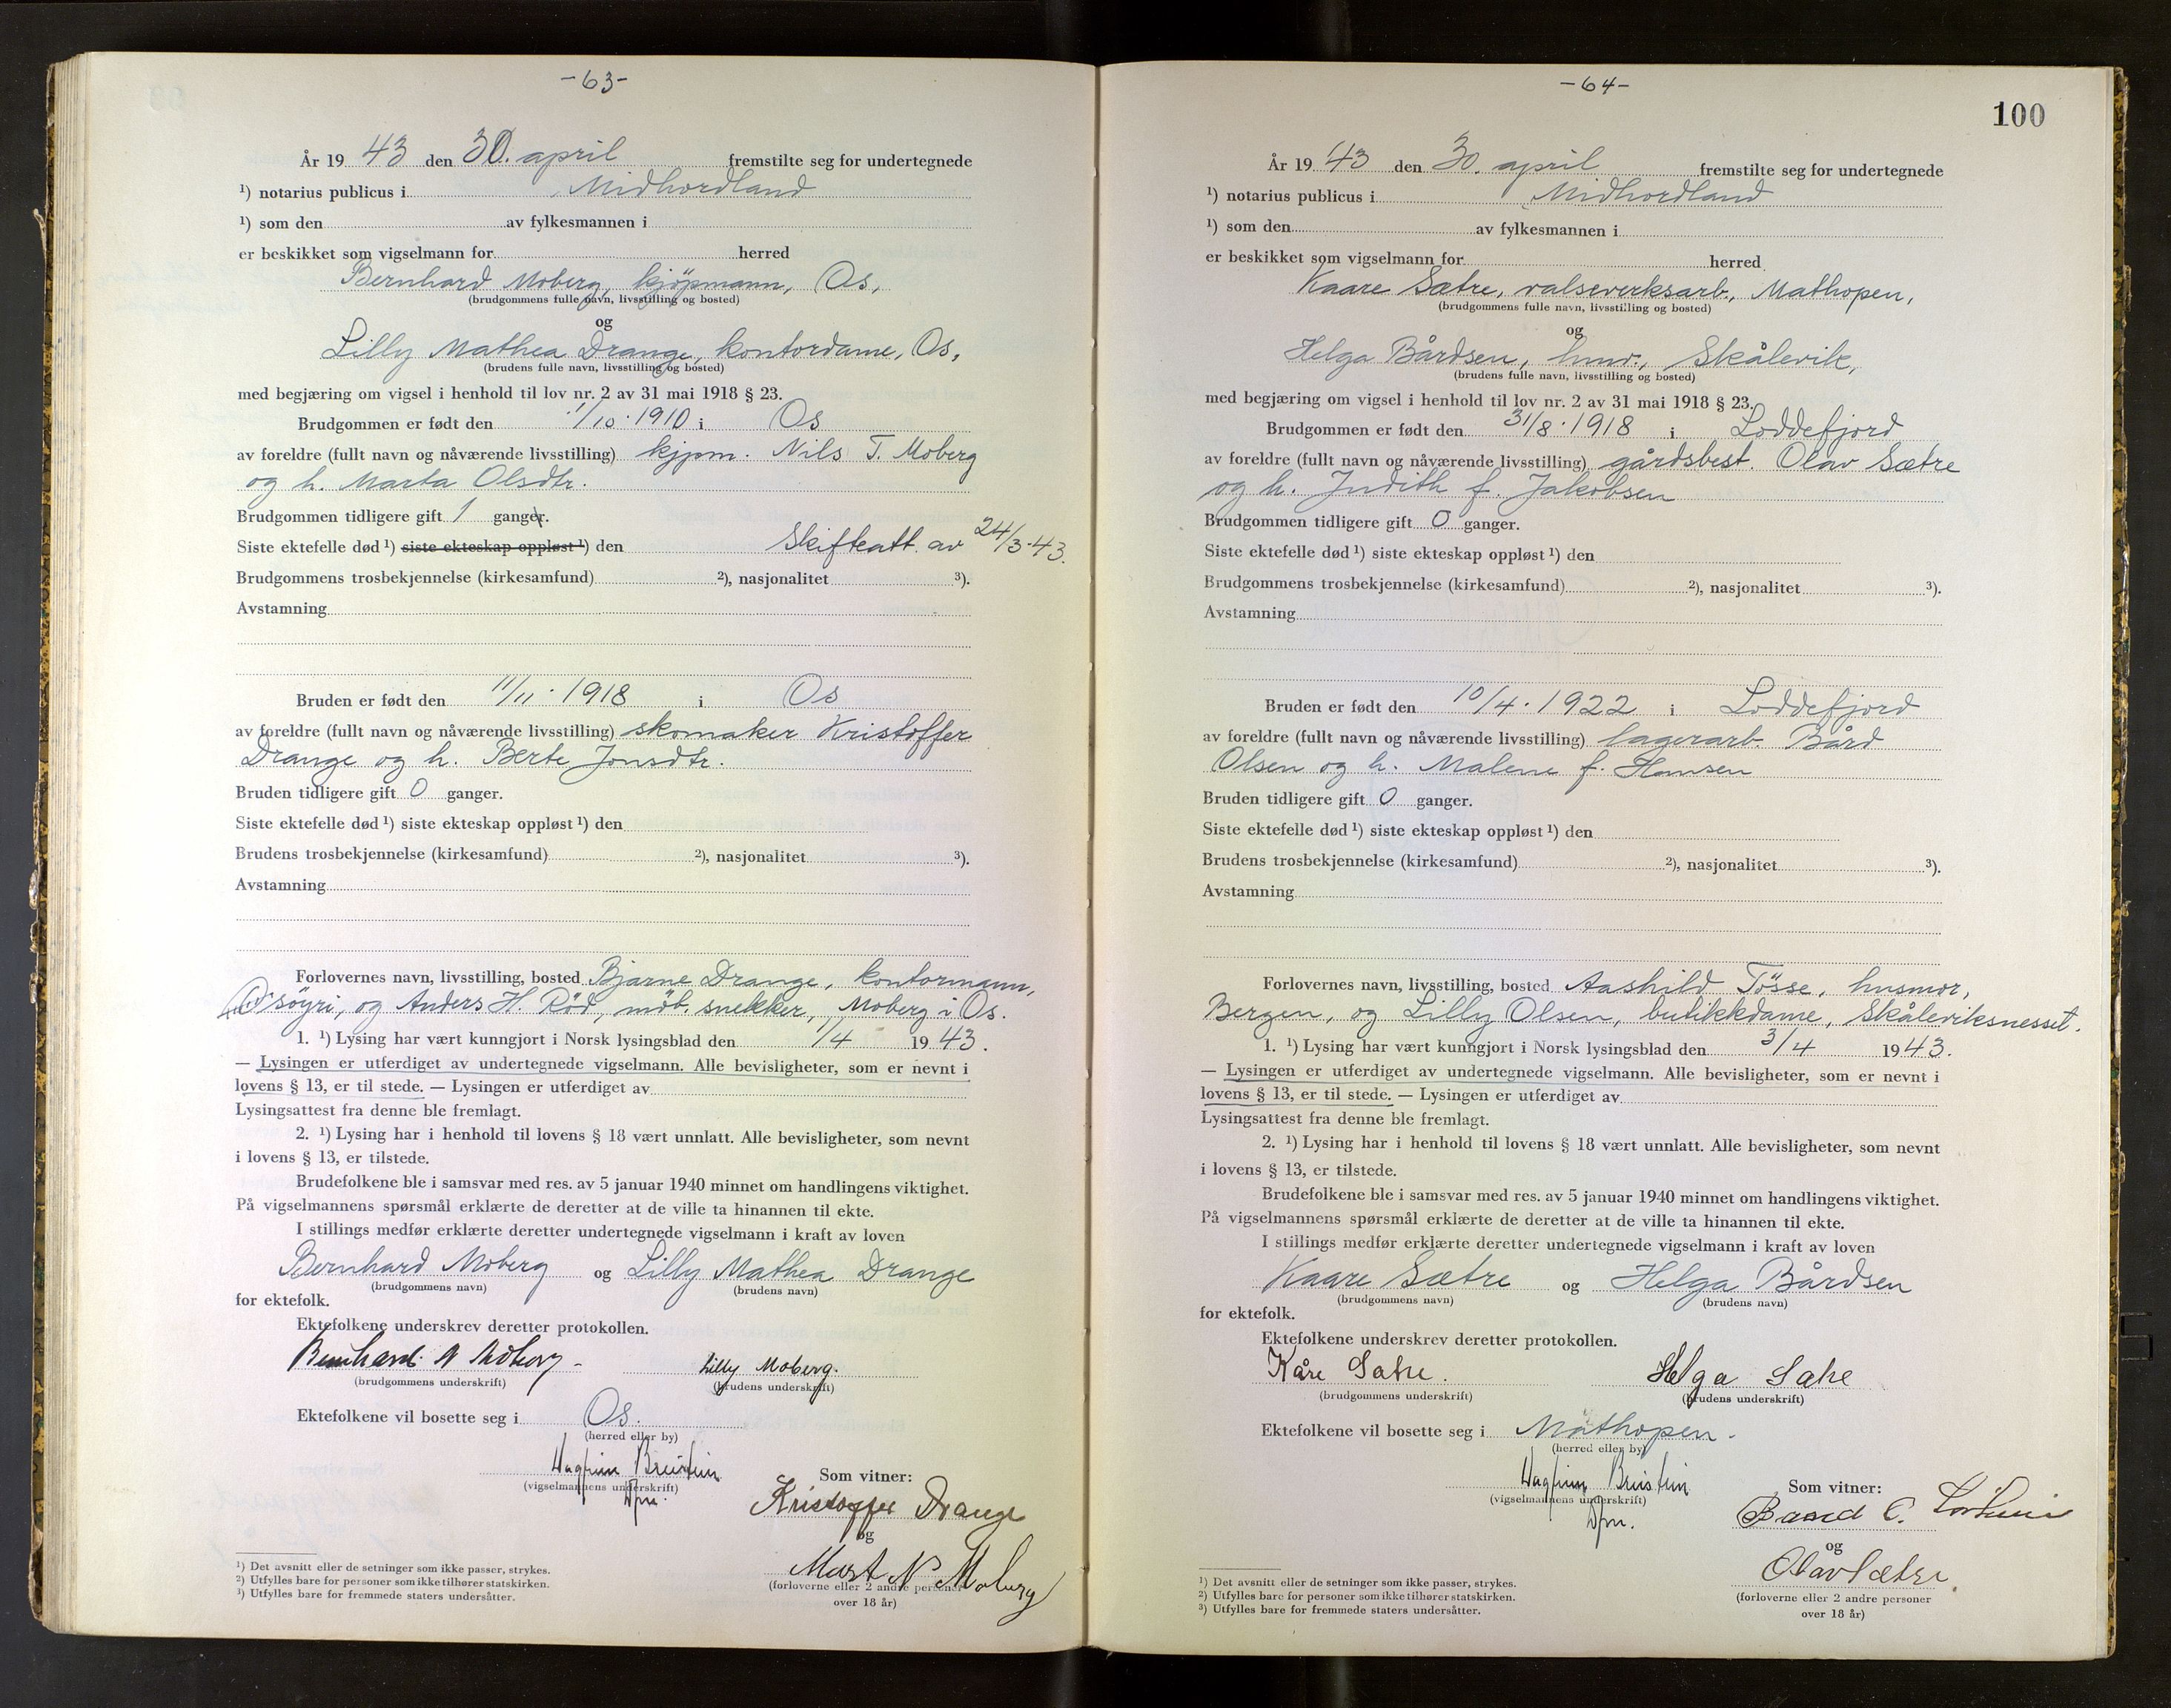 -63-
År 1943 den 30. april fremstilte seg for undertegnede
¹) notarius publicus i Midhordland
¹) som den av fylkesmannen i
er beskikket som vigselmann for herred
Bernhard Moberg, kjøpmann, Os,
(brudgommens fulle navn, livsstilling og bosted)
og
Lilly Mathea Drange, kontordame, Os,
(brudens fulle navn, livsstilling og bosted)
med begjæring om vigsel i henhold til lov nr. 2 av 31 mai 1918 § 23.
Brudgommen er født den 1/10. 1910 i Os
av foreldre (fullt navn og nåværende livsstilling) kjpm. Nils T. Moberg
og h. Marta Olsdtr.
Brudgommen tidligere gift 1 ganger.
Siste ektefelle død ¹) siste ekteskap oppløst ¹) den Skifteatt. av 24/3.43.
Brudgommens trosbekjennelse (kirkesamfund) ²), nasjonalitet ³).
Avstamning
Bruden er født den 11/11. 1918 i Os
av foreldre (fullt navn og nåværende livsstilling) skomaker Kristoffer
Drange og h. Berte Jonsdtr.
Bruden tidligere gift 0 ganger.
Siste ektefelle død ¹) siste ekteskap oppløst ¹) den
Brudens trosbekjennelse (kirkesamfund) ²), nasjonalitet ³).
Avstamning
Forlovernes navn, livsstilling, bosted Bjarne Drange, kontormann,
Osøyri, og Anders H. Rød, møb. snekker, Moberg i Os.
1. ¹) Lysing har vært kunngjort i Norsk lysingsblad den 1/4 1943.
— Lysingen er utferdiget av undertegnede vigselmann. Alle bevisligheter, som er nevnt i
lovens § 13, er til stede. — Lysingen er utferdiget av
Lysingsattest fra denne ble fremlagt.
2. ¹) Lysing har i henhold til lovens § 18 vært unnlatt. Alle bevisligheter, som nevnt
i lovens § 13, er tilstede.
Brudefolkene ble i samsvar med res. av 5 januar 1940 minnet om handlingens viktighet.
På vigselmannens spørsmål erklærte de deretter at de ville ta hinannen til ekte.
I stillings medfør erklærte deretter undertegnede vigselmann i kraft av loven
Bernhard Moberg og Lilly Mathea Drange
(brudgommens navn) (brudens navn)
for ektefolk.
Ektefolkene underskrev deretter protokollen.
Bernhard N Moberg - Lilly Moberg.
(brudgommens underskrift) (brudens underskrift)
Ektefolkene vil bosette seg i Os.
(herred eller by)
Hagfinn Breistein
(vigselmannens underskrift)
Dfm.
Som vitner:
Kristoffer Drange
og
Mart N Moberg
(forloverne eller 2 andre personer
over 18 år)
¹) Det avsnitt eller de setninger som ikke passer, strykes.
²) Utfylles bare for personer som ikke tilhører statskirken.
³) Utfylles bare for fremmede staters undersåtter.
-64-
100
År 1943 den 30. april fremstilte seg for undertegnede
¹) notarius publicus i Midhordland
¹) som den av fylkesmannen i
er beskikket som vigselmann for herred
Kaare Sætre, valseverksarb., Mathopen,
(brudgommens fulle navn, livsstilling og bosted)
og
Helga Bårdsen, hmv., Skålevik,
(brudens fulle navn, livsstilling og bosted)
med begjæring om vigsel i henhold til lov nr. 2 av 31 mai 1918 § 23.
Brudgommen er født den 31/8. 1918 i Loddefjord
av foreldre (fullt navn og nåværende livsstilling) gårdsbest. Olav Sætre
og h. Judith f. Jakobsen
Brudgommen tidligere gift 0 ganger.
Siste ektefelle død ¹) siste ekteskap oppløst ¹) den
Brudgommens trosbekjennelse (kirkesamfund) ²), nasjonalitet ³).
Avstamning
Bruden er født den 10/4. 1922 i Loddefjord
av foreldre (fullt navn og nåværende livsstilling) lagerarb. Bård
Olsen og h. Malene f. Hansen
Bruden tidligere gift 0 ganger.
Siste ektefelle død ¹) siste ekteskap oppløst ¹) den
Brudens trosbekjennelse (kirkesamfund) ²), nasjonalitet ³).
Avstamning
Forlovernes navn, livsstilling, bosted Aashild Tøsse, husmor,
Bergen, og Lilly Olsen, butikkdame, Skåleviksnesset.
1. ¹) Lysing har vært kunngjort i Norsk lysingsblad den 3/4 1943.
— Lysingen er utferdiget av undertegnede vigselmann. Alle bevisligheter, som er nevnt i
lovens § 13, er til stede. — Lysingen er utferdiget av
Lysingsattest fra denne ble fremlagt.
2. ¹) Lysing har i henhold til lovens § 18 vært unnlatt. Alle bevisligheter, som nevnt
i lovens § 13, er tilstede.
Brudefolkene ble i samsvar med res. av 5 januar 1940 minnet om handlingens viktighet.
På vigselmannens spørsmål erklærte de deretter at de ville ta hinannen til ekte.
I stillings medfør erklærte deretter undertegnede vigselmann i kraft av loven
Kaare Sætre og Helga Bårdsen
(brudgommens navn) (brudens navn)
for ektefolk.
Ektefolkene underskrev deretter protokollen.
Kåre Sætre. Helga Sætre
(brudgommens underskrift) (brudens underskrift)
Ektefolkene vil bosette seg i Mathopen.
(herred eller by)
Hagfinn Breistein
(vigselmannens underskrift)
Dfm.
Som vitner:
Baard O.
og
Olav Sætre.
(forloverne eller 2 andre personer
over 18 år)
¹) Det avsnitt eller de setninger som ikke passer, strykes.
²) Utfylles bare for personer som ikke tilhører statskirken.
³) Utfylles bare for fremmede staters undersåtter.